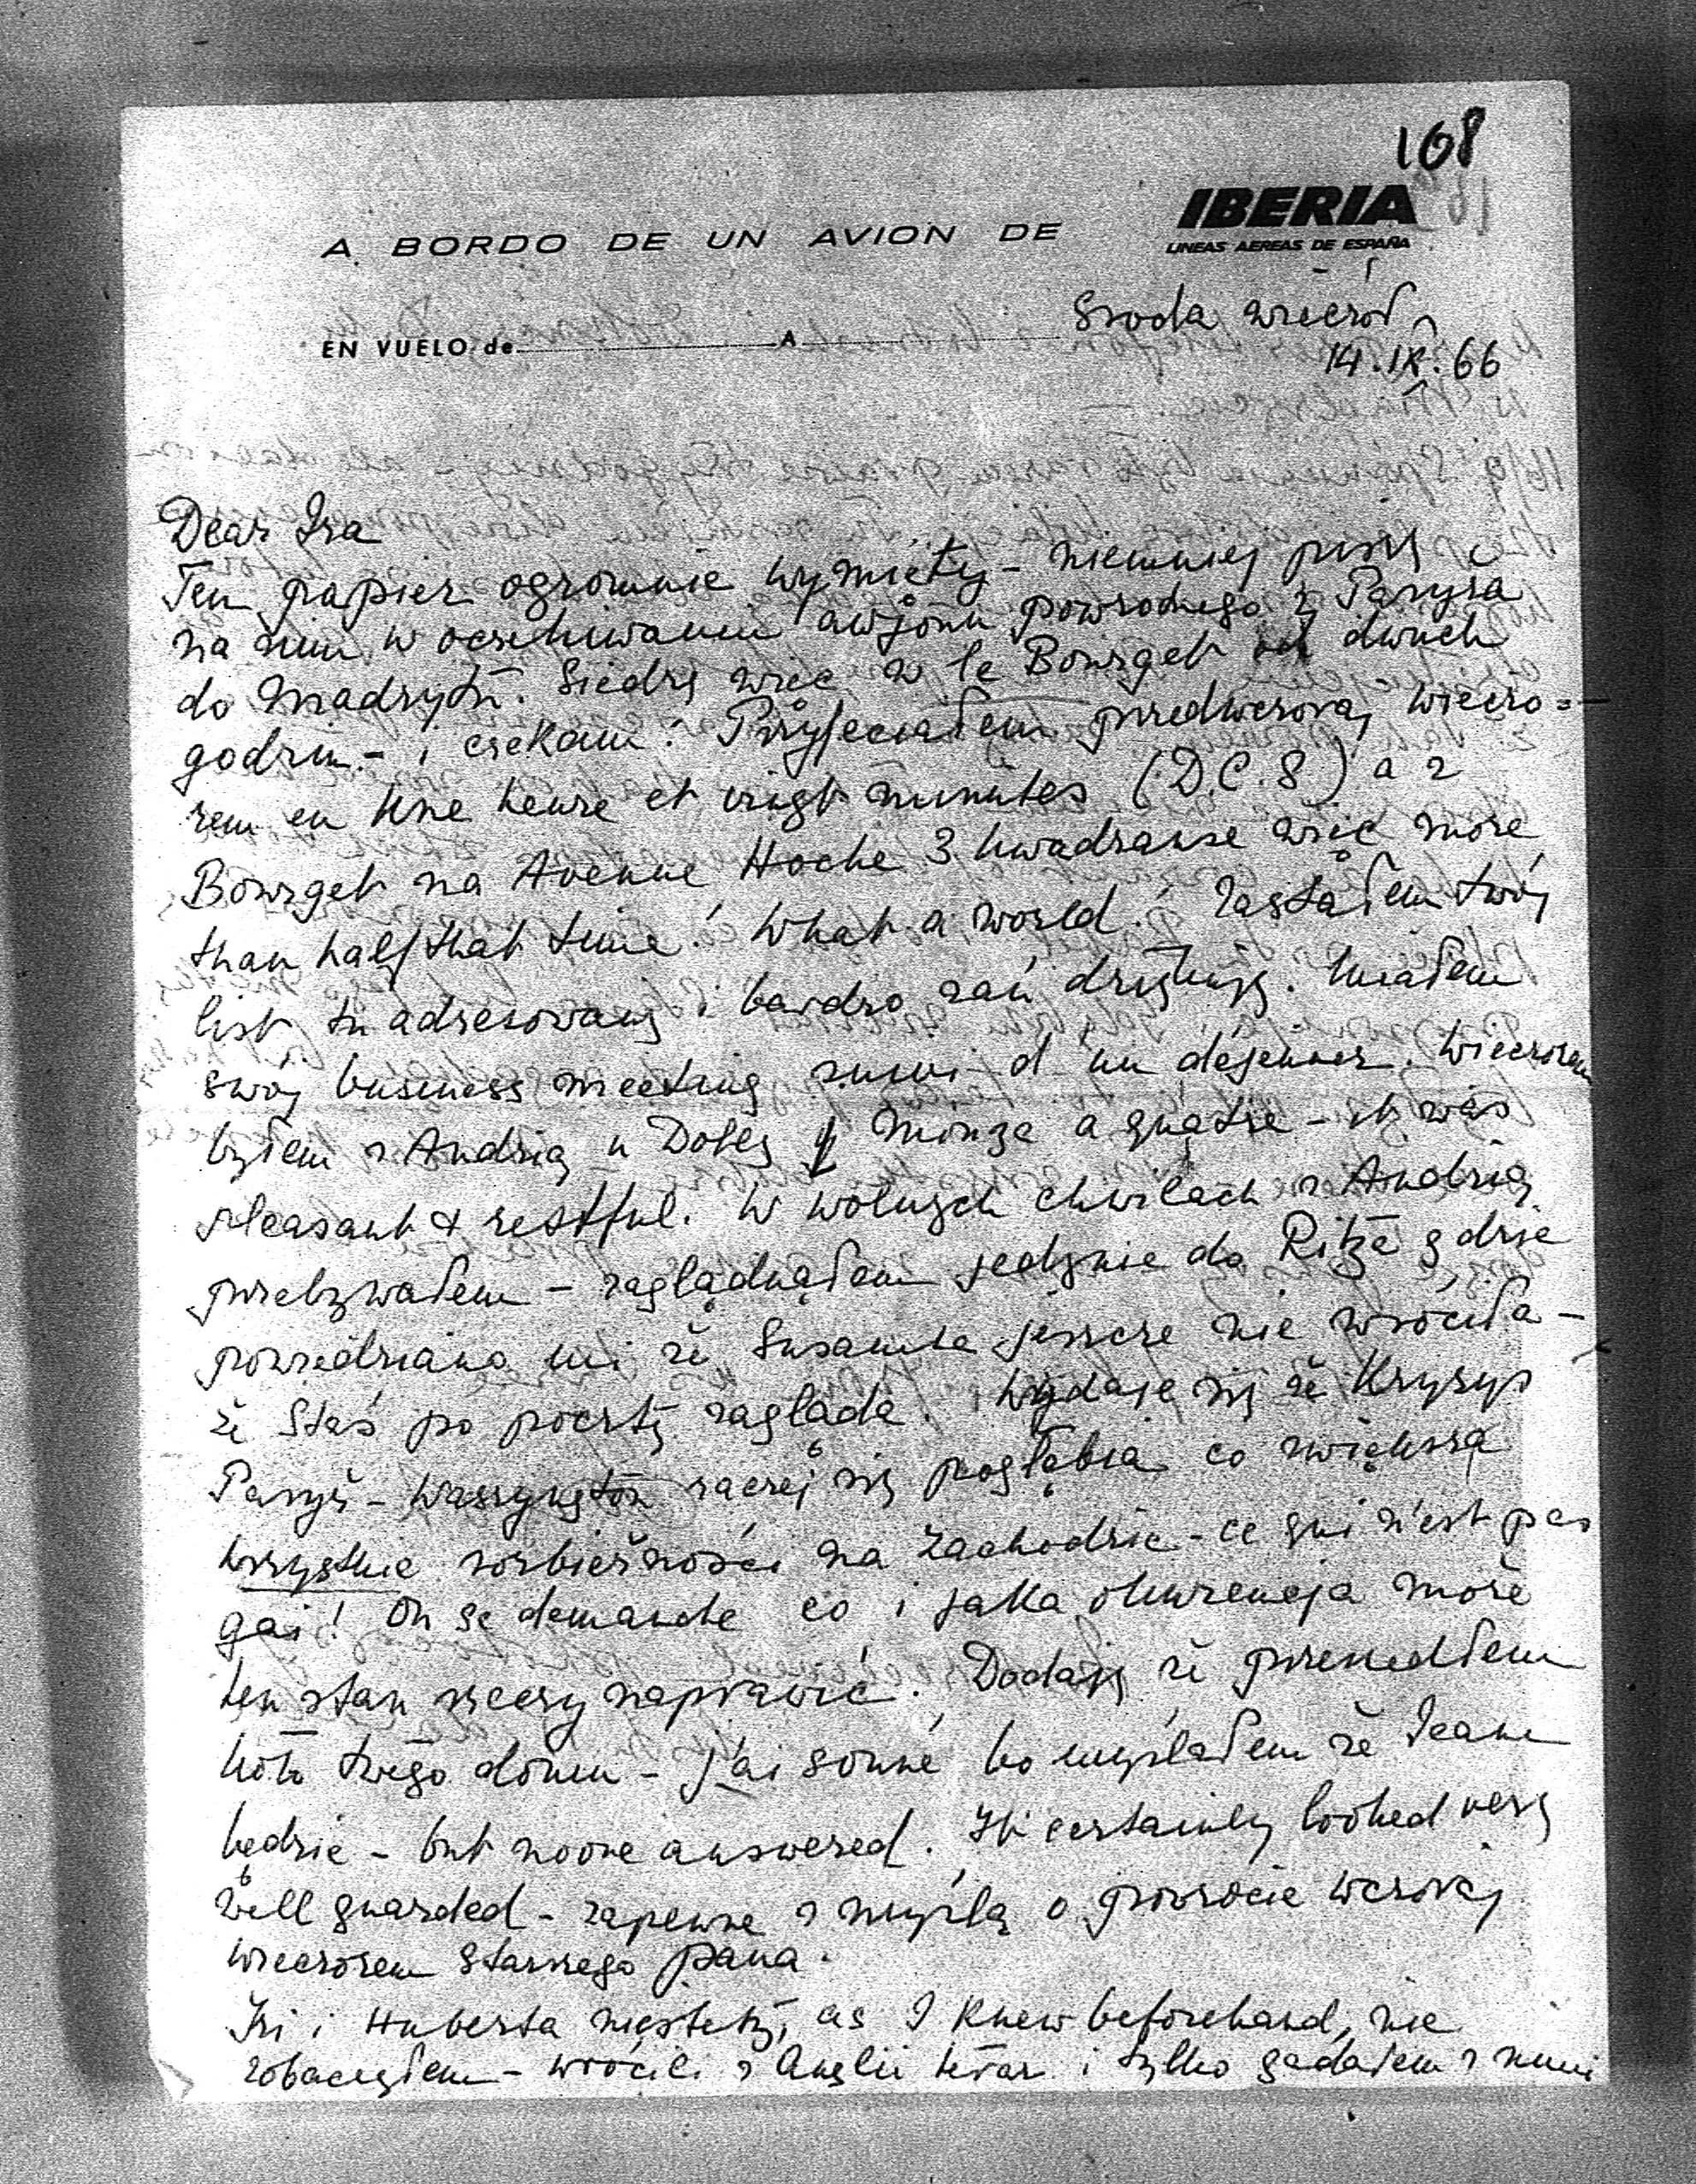 108
IBERIA
LINEAS AEREAS DE ESPAÑA
A BORDO DE UN AVION DE
EN VUELO de A
Sroda wieczór
14.IX.66
Dear Ira
Ten papier ogromnie wymięty - niemniej piszę
na nim w oczekiwaniu awjonu powrotnego z Paryża
do Madrytu. Siedzę więc w le Bourget od dwuch
godzin - i czekam! Przyleciałem przedwczoraj wieczo=
rem en une heure et vingt minutes (D.C.8) a z
Bourget na Avenue Hoche 3 kwadranse więc more
than half that time! What a world! Zastałem twój
list tu adresowany i bardzo zań dziękuję. Miałem
swój business meeting suivi d'un déjeuner. Wieczorem
byłem z Andzią u Dolly à quatre - it was
pleasant & restful. W wolnych chwilach z Andzią
przebywałem - zaglądnąłem jedynie do Ritza gdzie
powiedziano mi że jeszcze nie wróciła -
że Staś po pocztę zagląda. Wydaje się że Kryzys
Paryż - Waszyngton raczej się pogłębia co zwiększa
wszystkie rozbieżności na zachodzie - ce qui n'est pas
gai! On se demande co i jaka okurencja może
ten stan rzeczy naprawić. Dodaję że przeszedłem
koło twego domu - j'ai sonné bo myślałem że Jeanne
będzie - but noone answered. It certainly looked very
well guarded - zapewne z myślą o powrocie wczoraj
wieczorem starszego pana.
Izi i Huberta niestety, as I knew beforehand, nie
zobaczyłem - wrócili z Anglii teraz i tylko gadałem z nimi